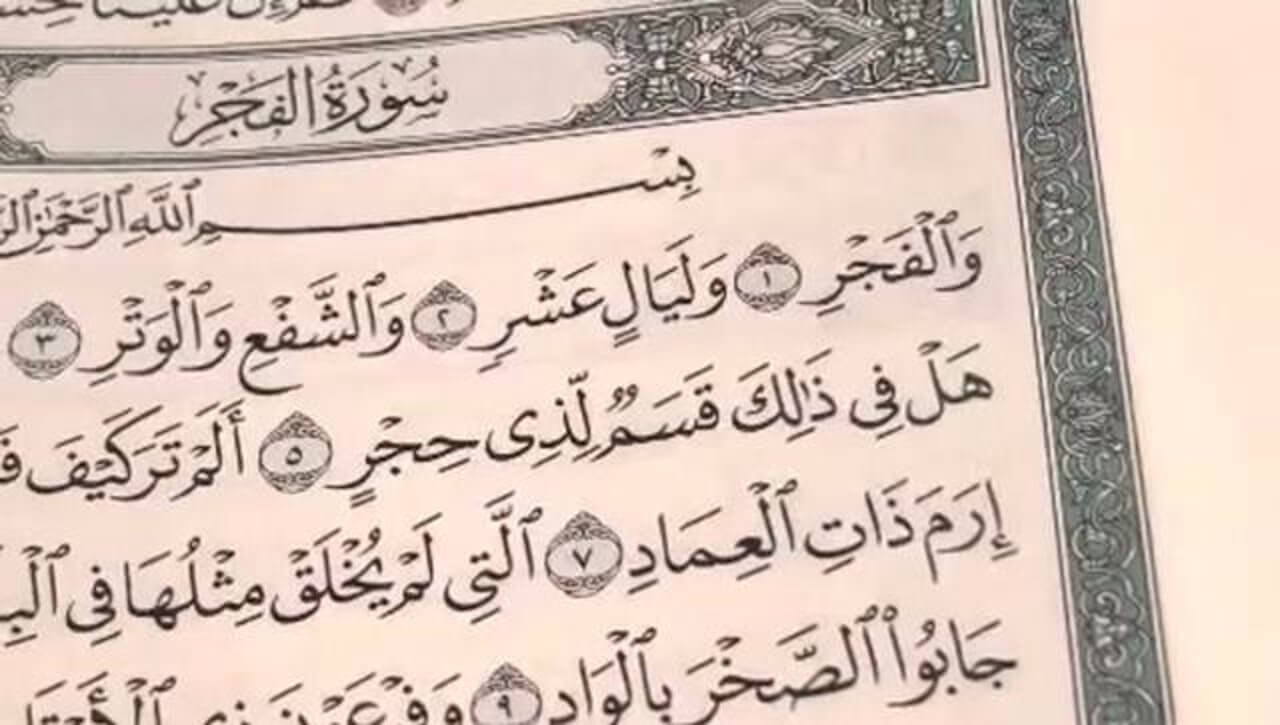 علينا
سُورَةُ الفَجْرِ
بِسْمِ ٱللَّهِ ٱلرَّحْمَٰنِ
وَٱلْفَجْرِ ١ وَلَيَالٍ عَشْرٍ ٢ وَٱلشَّفْعِ وَٱلْوَتْرِ ٣
هَلْ فِى ذَٰلِكَ قَسَمٌ لِّذِى حِجْرٍ ٥ أَلَمْ تَرَ كَيْفَ
إِرَمَ ذَاتِ ٱلْعِمَادِ ٧ ٱلَّتِى لَمْ يُخْلَقْ مِثْلُهَا فِى
جَابُوا۟ ٱلصَّخْرَ بِٱلْوَادِ ٩ وَفِرْعَوْنَ ذِى